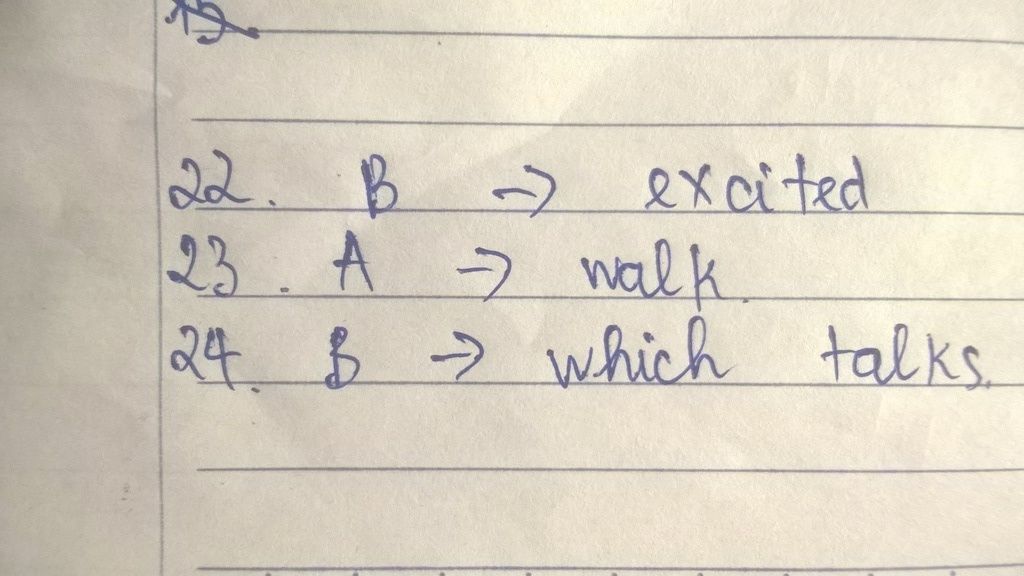 22. B → excited
23. A → walk.
24. B → which talks.